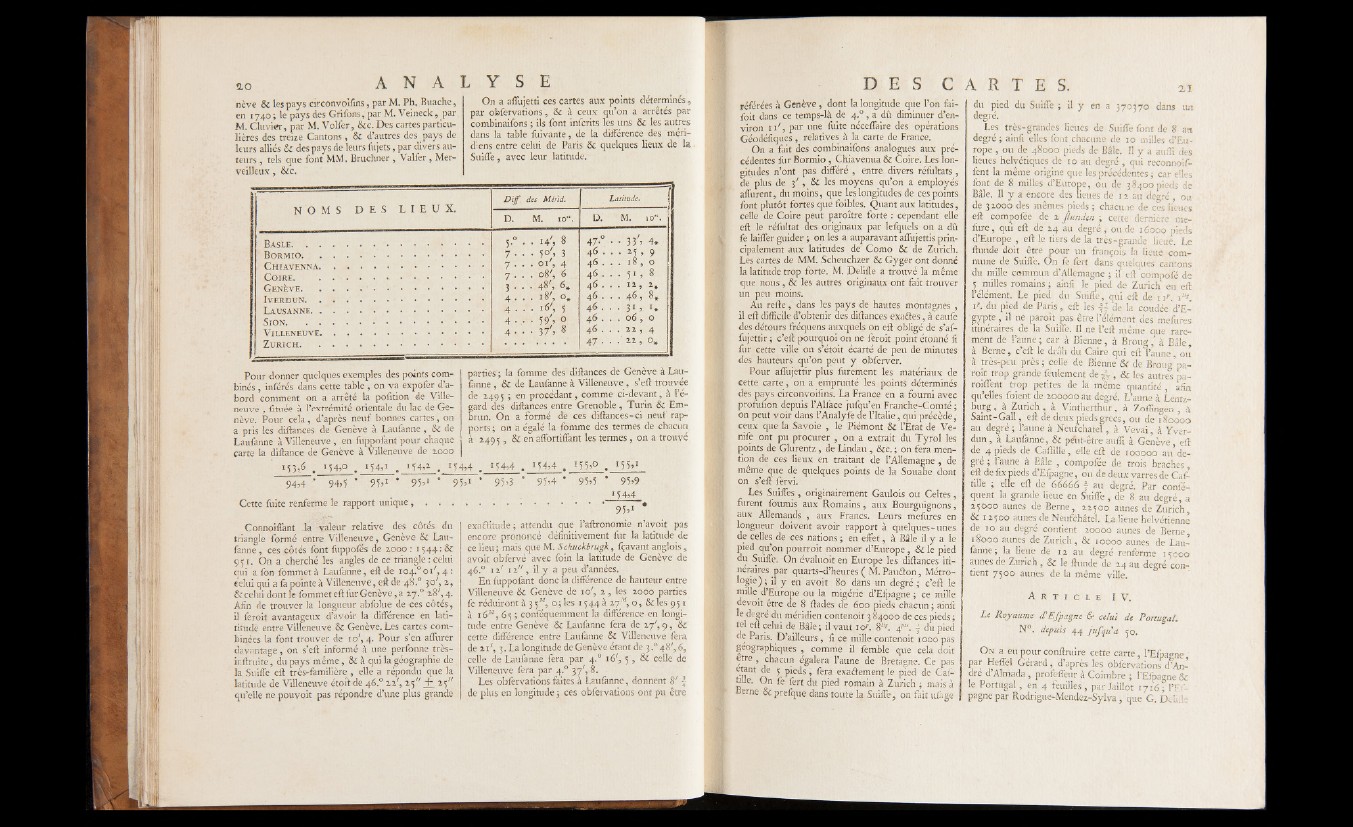 20 ANALYSE
nève & les pays circonvoisins, par M. Ph. Buache,
en 1740; le pays des Grisons, par M. Veineck, par
M. Cluvier, par M. Volser, &c. Des cartes particu-
lières des treize Cantons, & d'autres des pays de
leurs alliés & des pays de leurs sujets, par divers au-
teurs, tels que sont MM. Bruchner, Valser, Mer-
veilleux, &c.
On a assujetti ces cartes aux points déterminés,
par observations, & à ceux qu'on a arrêtés par
combinaisons; ils sont inscrits les uns & les autres
dans la table suivante, de la différence des méri-
diens entre celui de Paris & quelques lieux de la
Suisse, avec leur latitude.
NOMS DES LIEUX. Diff. des Mérid. Latitude.
D. M. 10es. D. M. 10es.
BASLE. 5.° . . 14′, 8 47.° . . 33′, 4*
BORMIO. 7 . . . 50′, 3 46 . . . 25, 9
CHIAVENNA. 7 . . . 01′, 4 46 . . . 18, 0
COIRE. 7 . . . 08′, 6 46 . . . 51, 8
GENÈVE. 3 . . . 48′, 6* 46 . . . 12, 2*
IVERDUN. 4 . . . 18′, 0* 46 . . . 46, 8*
LAUSANNE. 4 . . . 16′, 5 46 . . . 31, 1*
SION. 4 . . . 59′, 0 46 . . . 06, 0
VILLENEUVE. 4 . . . 37′, 8 46 . . . 22, 4
ZURICH. 47 . . . 22, 0*
Pour donner quelques exemples des points com-
binés, insérés dans cette table, on va exposer d'a-
bord comment on a arrêté la position de Ville-
neuve, située à l'extrémité orientale du lac de Ge-
nève. Pour cela, d'après neuf bonnes cartes, on
a pris les distances de Genève à Lausanne, & de
Lausanne à Villeneuve, en supposant pour chaque
carte la distance de Genève à Villeneuve de 2000
parties; la somme des distances de Genève à Lau-
sanne, & de Lausanne à Villeneuve, s'est trouvée
de 2495; en procédant, comme ci-devant, à l'é-
gard des distances entre Grenoble, Turin & Em-
brun. On a formé de ces distances-ci neuf rap-
ports; on a égalé la somme des termes de chacun
à 2495, & en assortissant les termes, on a trouvé
153,6 . 154,0 . 154,1 . 154,2 . 154,4 . 154,4 . 154,4 . 155,0 . 155,1
94,4 . 94,5 . 95,1 . 95,1 . 95,1 . 95,3 . 95,4 . 95,5 . 95,9
Cette suite renferme le rapport unique, 154,4 / 95,1 *
Connoissant la valeur relative des côtés du
triangle formé entre Villeneuve, Genève & Lau-
sanne, ces côtés sont supposés de 2000: 1544: &
951. On a cherché les angles de ce triangle: celui
qui a son sommet à Lausanne, est de 104.° 01′, 4:
celui qui a sa pointe à Villeneuve, est de 48.° 30′, 2,
& celui dont le sommet est sur Genève, a 27.° 28′, 4.
Afin de trouver la longueur absolue de ces côtés,
il seroit avantageux d'avoir la différence en lati-
titude entre Villeneuve & Genève. Les cartes com-
binées la font trouver de 10′, 4. Pour s'en assurer
davantage, on s'est informé à une personne très-
instruite, du pays même, & à qui la géographie de
la Suisse est très-familière, elle a répondu que la
latitude de Villeneuve étoit de 46.° 22′, 25″ ± 25″
qu'elle ne pouvoit pas répondre d'une plus grande
exactitude; attendu que l'astronomie n'avoit pas
encore prononcé définitivement sur la latitude de
ce lieu; mais que M. Schuckbrugk, sçavant anglois,
avoir observé avec soin la latitude de Genève de
46.° 12′ 12″, il y a peu d'années.
En supposant donc la différence de hauteur entre
Villeneuve & Genève de 10′, 2, les 2000 parties
se réduiront à 35M, 0; les 1544 à 27M, 0, & les 951
à 16M, 65; conséquemment la différence en longi-
tude entre Genève & Lausanne sera de 27′, 9, &
cette différence entre Lausanne & Villeneuve sera
de 21′, 3. La longitude de Genève étant de 3.° 48′, 6,
celle de Lausanne sera par 4.° 16′, 5, & celle de
Villeneuve sera par 4.° 37′, 8.
Les observations faites à Lausanne, donnent 8′
de plus en longitude; ces observations ont pu être
DES CARTES. 21
référées à Genève, dont la longitude que l'on fai-
soit dans ce temps-là de 4.°, a dû diminuer d'en-
viron 11′, par une suite nécessaire des opérations
Géodésiques, relatives à la carte de France.
On a fait des combinaisons analogues aux pré-
cédentes sur Bormio, Chiavenna & Coire. Les lon-
gitudes n'ont pas différé, entre divers résultats,
de plus de 3′, & les moyens qu'on a employés
assurent, du moins, que les longitudes de ces points
sont plutôt fortes que foibles. Quant aux latitudes,
celle de Coire peut paroître forte: cependant elle
est le résultat des originaux par lesquels on a dû
se laisser guider; on les a auparavant assujettis prin-
cipalement aux latitudes de Como & de Zurich.
Les cartes de MM. Scheuchzer & Gyger ont donné
la latitude trop forte. M. Delisle a trouvé la même
que nous, & les autres originaux ont fait trouver
un peu moins.
Au reste, dans les pays de hautes montagnes,
il est difficile d'obtenir des distances exactes, à cause
des détours fréquens auxquels on est obligé de s'as-
sujettir; c'est pourquoi on ne seroit point étonné si
sur cette ville on s'étoit écarté de peu de minutes
des hauteurs qu'on peut y observer.
Pour assujettir plus surement les matériaux de
cette carte, on a emprunté les points déterminés
des pays circonvoisins. La France en a fourni avec
profusion depuis l'Alsace jusqu'en Franche-Comté;
on peut voir dans l'Analyse de l'Italie, qui précède,
ceux que la Savoie, le Piémont & l'Etat de Ve-
nise ont pu procurer, on a extrait du Tyrol les
points de Glurentz, de Lindau, &c.; on fera men-
tion de ces lieux en traitant de l'Allemagne, de
même que de quelques points de la Souabe dont
on s'est servi.
Les Suisses, originairement Gaulois ou Celtes,
furent soumis aux Romains, aux Bourguignons,
aux Allemands, aux Francs. Leurs mesures en
longueur doivent avoir rapport à quelques-unes
de celles de ces nations; en effet, à Bâle il y a le
pied qu'on pourroit nommer d'Europe, & le pied
du Suisse. On évaluoit en Europe les distances iti-
néraires par quarts-d'heures (M. Paucton, Métro-
logie); il y en avoit 80 dans un degré; c'est le
mille d'Europe ou la migérie d'Espagne; ce mille
devoit être de 8 stades de 600 pieds chacun; ainsi
le degré du méridien contenoit 384000 de ces pieds;
tel est celui de Bâle; il vaut 10p. 8po. 4li. du pied
de Paris. D'ailleurs, si ce mille contenoit 1000 pas
géographiques, comme il semble que cela doit
être, chacun égalera l'aune de Bretagne. Ce pas
étant de 5 pieds, sera exactement le pied de Cas-
tille. On se sert du pied romain à Zurich; mais à
Berne & presque dans toute la Suisse, on fait usage
du pied du Suisse; il y en a 370370 dans un
degré.
Les très-grandes lieues de Suisse sont de 8 au
degré; ainsi elles sont chacune de 10 milles d'Eu-
rope, ou de 48000 pieds de Bâle. Il y a aussi des
lieues helvétiques de 10 au degré, qui reconnois-
sent la même origine que les précédentes; car elles
sont de 8 milles d'Europe, ou de 38400 pieds de
Bâle. Il y a encore des lieues de 12 au degré, ou
de 32000 des mêmes pieds; chacune de ces lieues
est composée de 2 stunden; cette dernière me-
sure, qui est de 24 au degré, ou de 16000 pieds
d'Europe, est le tiers de la très-grande lieue. Le
stunde doit être pour un françois la lieue com-
mune de Suisse. On se sert dans quelques cantons
du mille commun d'Allemagne; il est composé de
5 milles romains; ainsi le pied de Zurich en est
l'élément. Le pied du Suisse, qui est de
du pied de Paris, est les de la coudée d'E-
gypte, il ne paroit pas être l'élément des mesures
itinéraires de la Suisse. Il ne l'est même que rare-
ment de l'aune; car à Bienne, à Broug, à Bâle,
à Berne, c'est le drâh du Caire qui est l'aune, ou
à très-peu près; celle de Bienne & de Broug pa-
roit trop grande seulement de, & les autres pa-
roissent trop petites de la même quantité, afin
qu'elles soient de 200000 au degré. L'aune à Lentz-
burg, à Zurich, à Vintherthur, à Zoffingeo, à
Saint-Gall, est de deux pieds grecs, ou de 180000
au degré; l'aune à Neufchatel, à Vevai, à Yver-
dun, à Lausanne, & peut-être aussi à Genève, est
de 4 pieds de Castille, elle est de 100000 au de-
gré; l'aune à Bâle, composée de trois braches,
est de six pieds d'Espagne, ou de deux varres de Cas-
tille; elle est de 66666 au degré. Par consé-
quent la grande lieue en Suisse, de 8 au degré, a
25000 aunes de Berne, 22500 aunes de Zurich,
& 12500 aunes de Neufchâtel. La lieue helvétienne
de 10 au degré contient 20000 aunes de Berne,
18000 aunes de Zurich, & 10000 aunes de Lau-
sanne; la lieue de 12 au degré renferme 15000
aunes de Zurich, & le stunde de 24 au degré con-
tient 7500 aunes de la même ville.
ARTICLE IV.
Le Royaume d'Espagne & celui de Portugal.
N°. depuis 44 jusqu'à 50.
ON a eu pour construire cette carte, l'Espagne,
par Hessel Gérard, d'après les observations d'An-
dré d'Almada, professeur à Coimbre; l'Espagne &
le Portugal, en 4 feuilles, par Jaillot 1716; l'Es-
pagne par Rodrigue-Mendez-Sylva, que G. Delisle